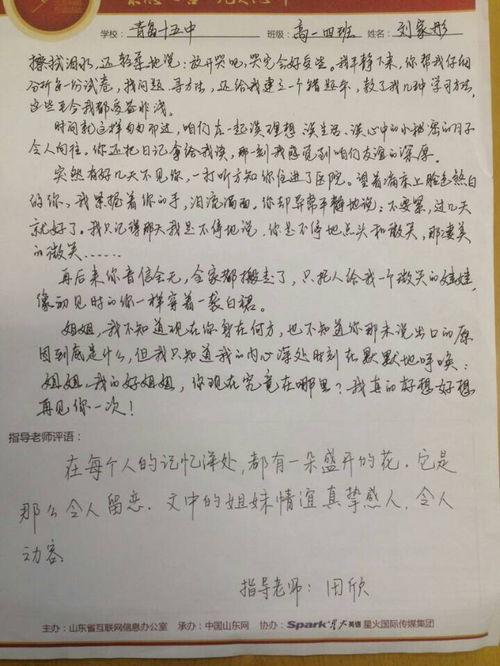 学校：青岛十五中 班级：高一四班 姓名：刘家彤
擦拭泪水，还轻柔地说：放开哭吧，哭完会好受些。我平静下来，你帮我仔细
分析每一份试卷，找问题，寻方法，还给我建立一个错题本，教了我几种学习方法，
这些至今我都受益非浅。
时间就这样匆匆而过，咱们在一起谈理想、谈生活、谈心中的小秘密的日子
令人向往。你还把日记拿给我读，那一刻我感觉到咱们友谊的深厚。
突然有好几天不见你，一打听方知你住进了医院。望着病床上脸色煞白
的你，我紧握着你的手，泪流满面。你却异常平静地说：不要紧，过几天
就好了。我只记得那天我是不停地说，你是不停地点头和微笑，那凄美
的微笑……
再后来你音信全无，全家都搬走了，只托人给我一个微笑的娃娃，
像初见时的你一样穿着一袭白裙。
姐姐，我不知道现在你身在何方，也不知道你那未说出口的原
因到底是什么，但我只知道我的内心深处时刻在默默地呼唤：
姐姐，我的好姐姐，你现在究竟在哪里？我真的好想好想
再见你一次！
指导老师评语：
在每个人的记忆深处，都有一朵盛开的花．它是
那么令人留恋．文中的姐妹情谊真挚感人，令人
动容．
指导老师：田欣
主办：山东省互联网信息办公室 承办：中国山东网 协办：Spark 星火英语 星火国际传媒集团